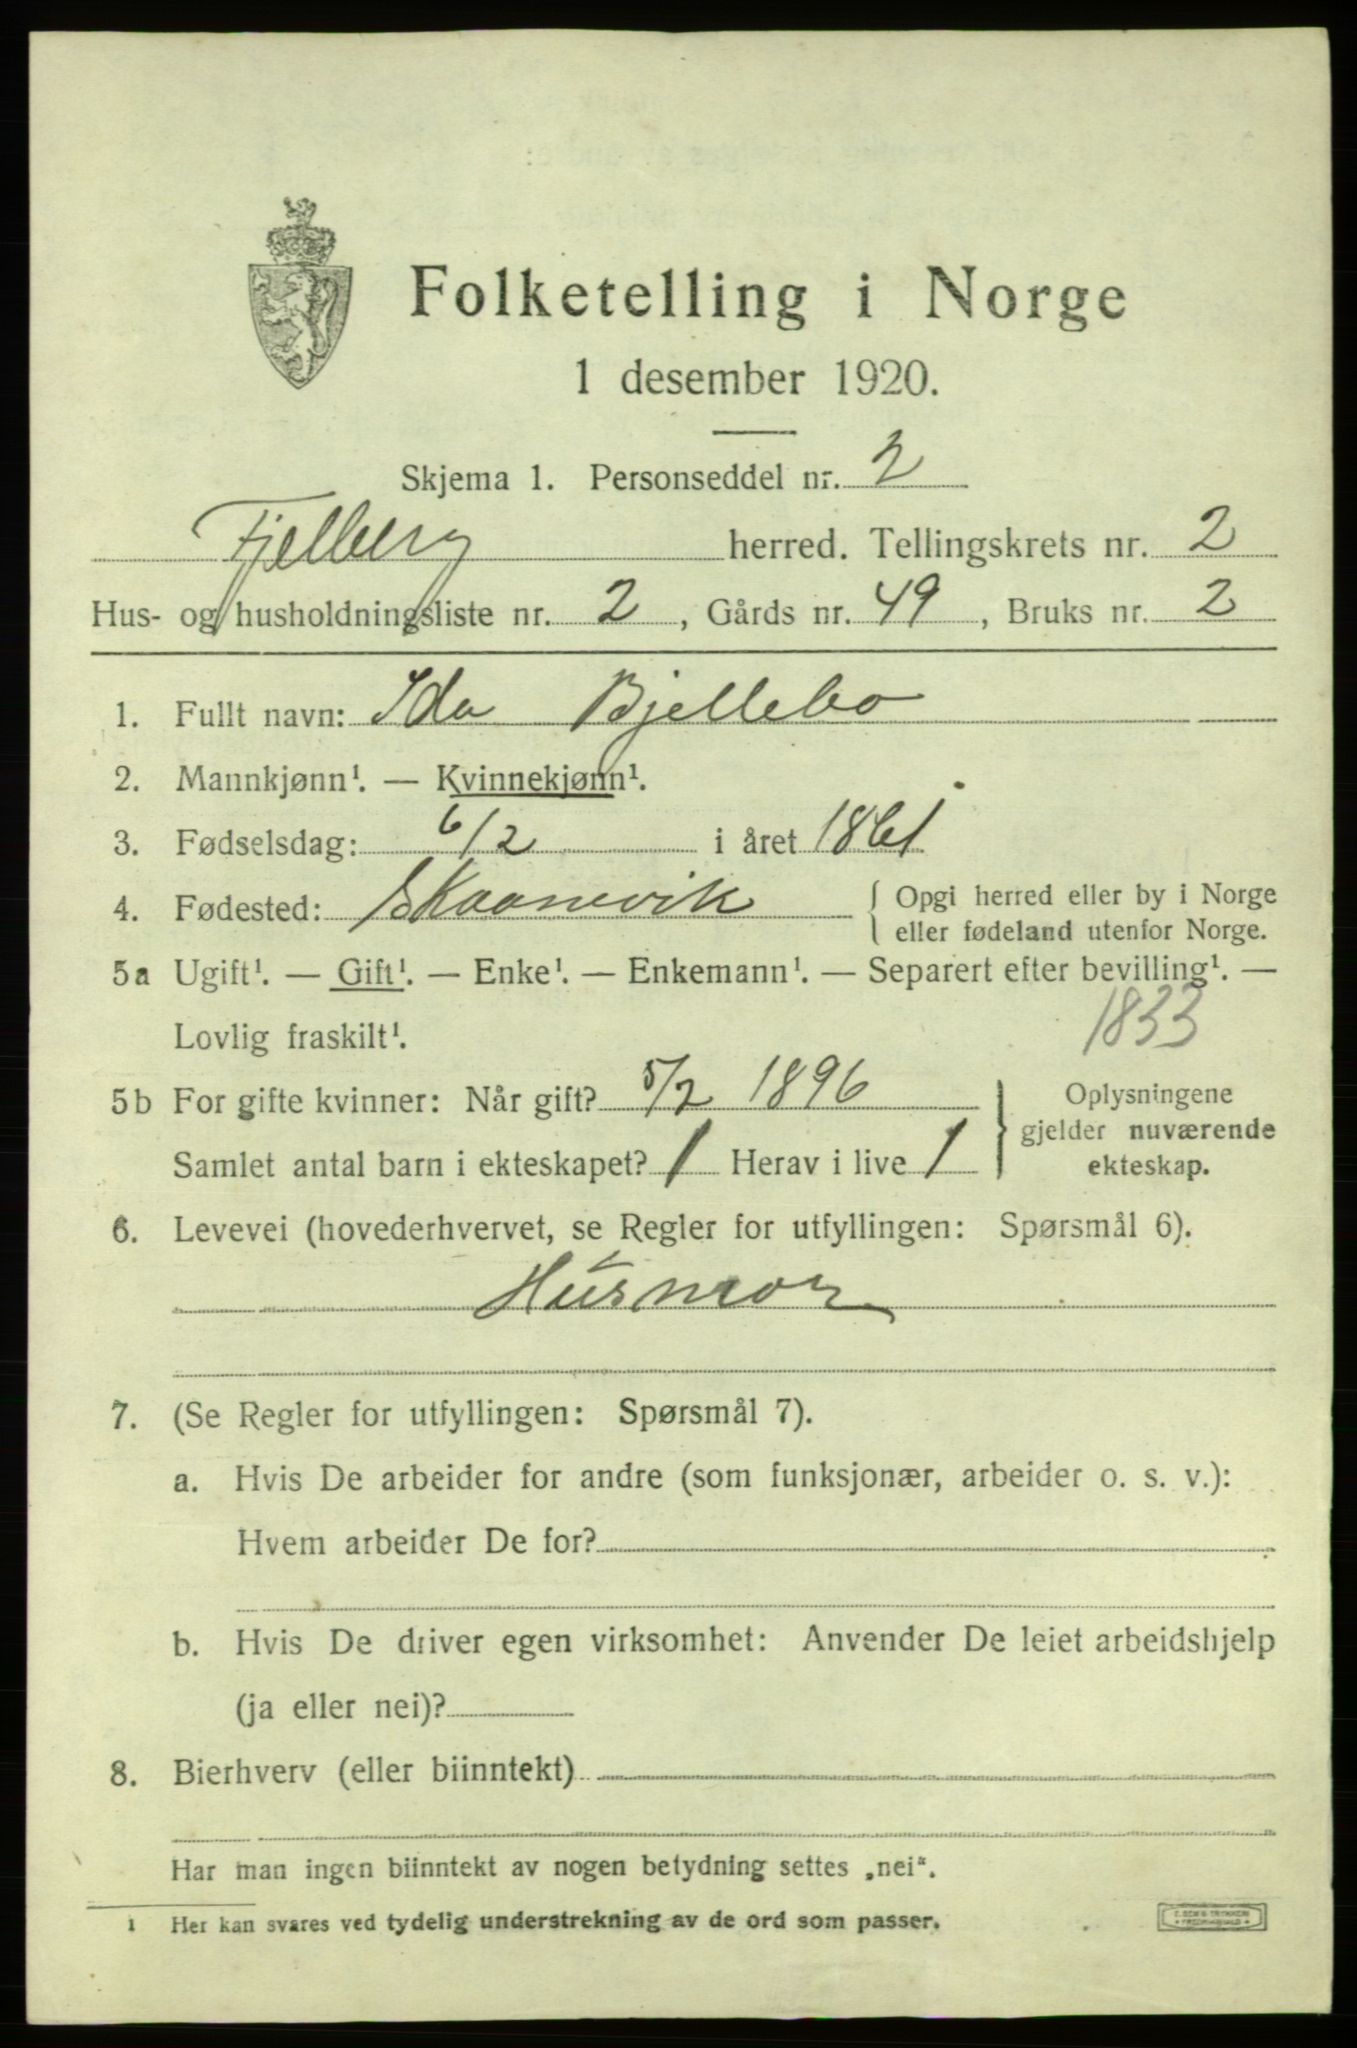 Folketelling i Norge
1 desember 1920.
Skjema 1. Personseddel nr. 2
Fjelberg herred. Tellingskrets nr. 2
Hus- og husholdningsliste nr. 2, Gårds nr. 49, Bruks nr. 2
1. Fullt navn: Ida Bjellebo
2. Mannkjønn¹. — Kvinnekjønn¹.
3. Fødselsdag: 6/2 i året 1861
4. Fødested: Skaanevik { Opgi herred eller by i Norge
eller fødeland utenfor Norge.
5a Ugift¹. — Gift¹. — Enke¹. — Enkemann¹. — Separert efter bevilling¹. —
Lovlig fraskilt¹. 1833
5b For gifte kvinner: Når gift? 5/2 1896
Samlet antal barn i ekteskapet? 1 Herav i live 1
} Oplysningene
gjelder nuværende
ekteskap.
6. Levevei (hovederhvervet, se Regler for utfyllingen: Spørsmål 6).
Husmor
7. (Se Regler for utfyllingen: Spørsmål 7).
a. Hvis De arbeider for andre (som funksjonær, arbeider o. s. v.):
Hvem arbeider De for?
b. Hvis De driver egen virksomhet: Anvender De leiet arbeidshjelp
(ja eller nei)?
8. Bierhverv (eller biinntekt)
Har man ingen biinntekt av nogen betydning settes „nei“.
1 Her kan svares ved tydelig understrekning av de ord som passer.